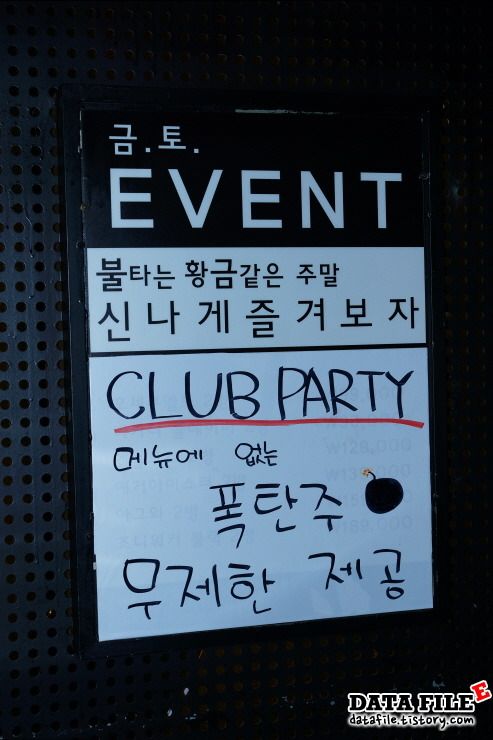 금.토.
EVENT
불타는 황금같은 주말
신나게즐겨보자
CLUB PARTY
메뉴에 없는
폭탄주
무제한 제공
₩129,000
₩189,000
DATA FILE
datafile.tistory.com